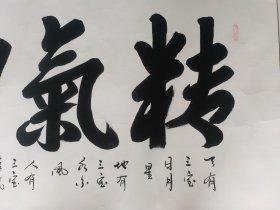 精氣
天有
三宝
日月
星
地有
三宝
水火
風
人有
三宝